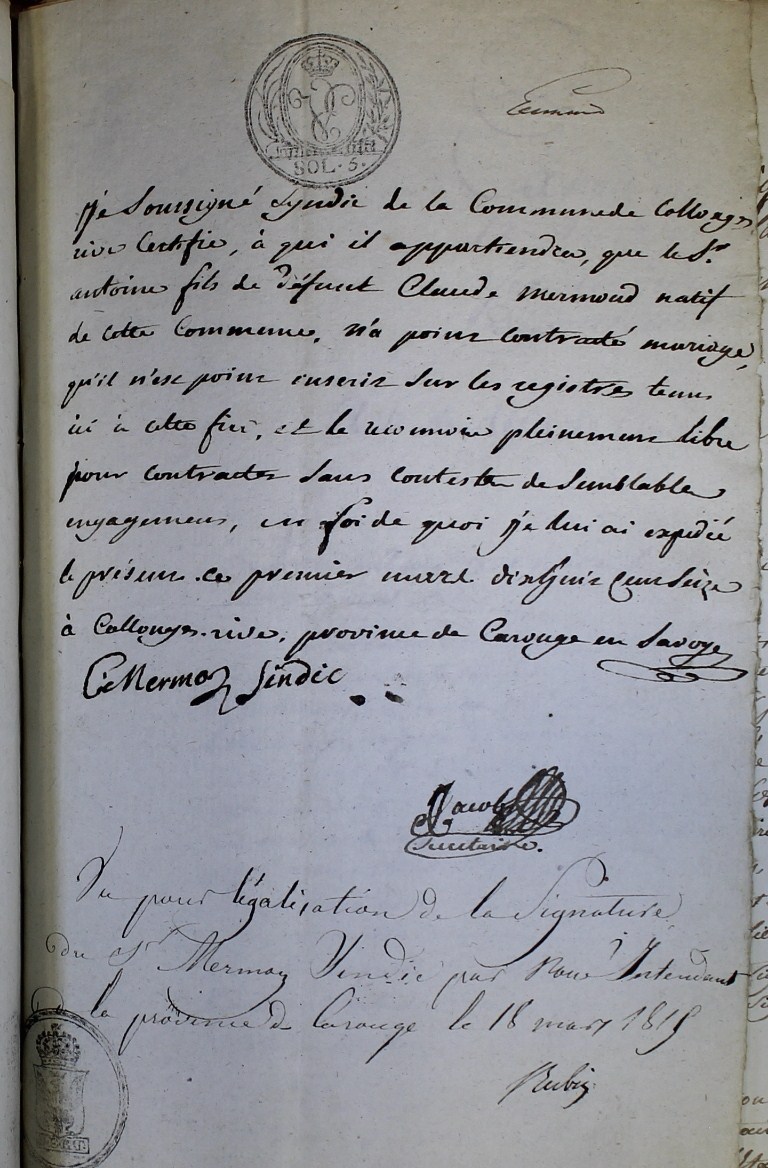 SOL. 5.
je Soussigné Syndic de la Commune de Collonges
rive Certifie, à qui il appartiendra, que le Sr.
antoine fils de défunt Claude mermoud natif
de cette Commune, n'a point contracté mariage,
qu'il n'est point inscrit sur les registres tenus
ici à cette fin, et le reconnois pleinement libre
pour contracter sans conteste de semblable
engagement, en foi de quoi je lui ai expédié
le présent ce premier mars dix huit cent seize
à Collonges-rive, province de Carouge en Savoye
Mermoz Sindic
Jacob
Secrétaire.
Vu pour légalisation de la Signature
du Sr Mermoz Sindic par nous Intendant
de la province de Carouge le 18 mars
Rubin